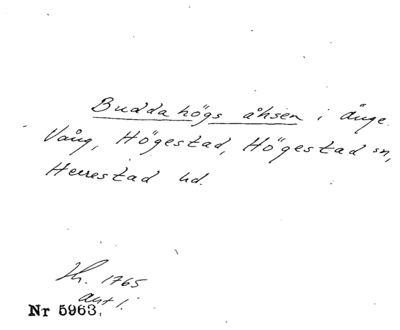 Buddahögs åhsen i änge
Vång, Högestad, Högestad sn,
Herrestad hd.
1765
akt 1.
Nr 5963.